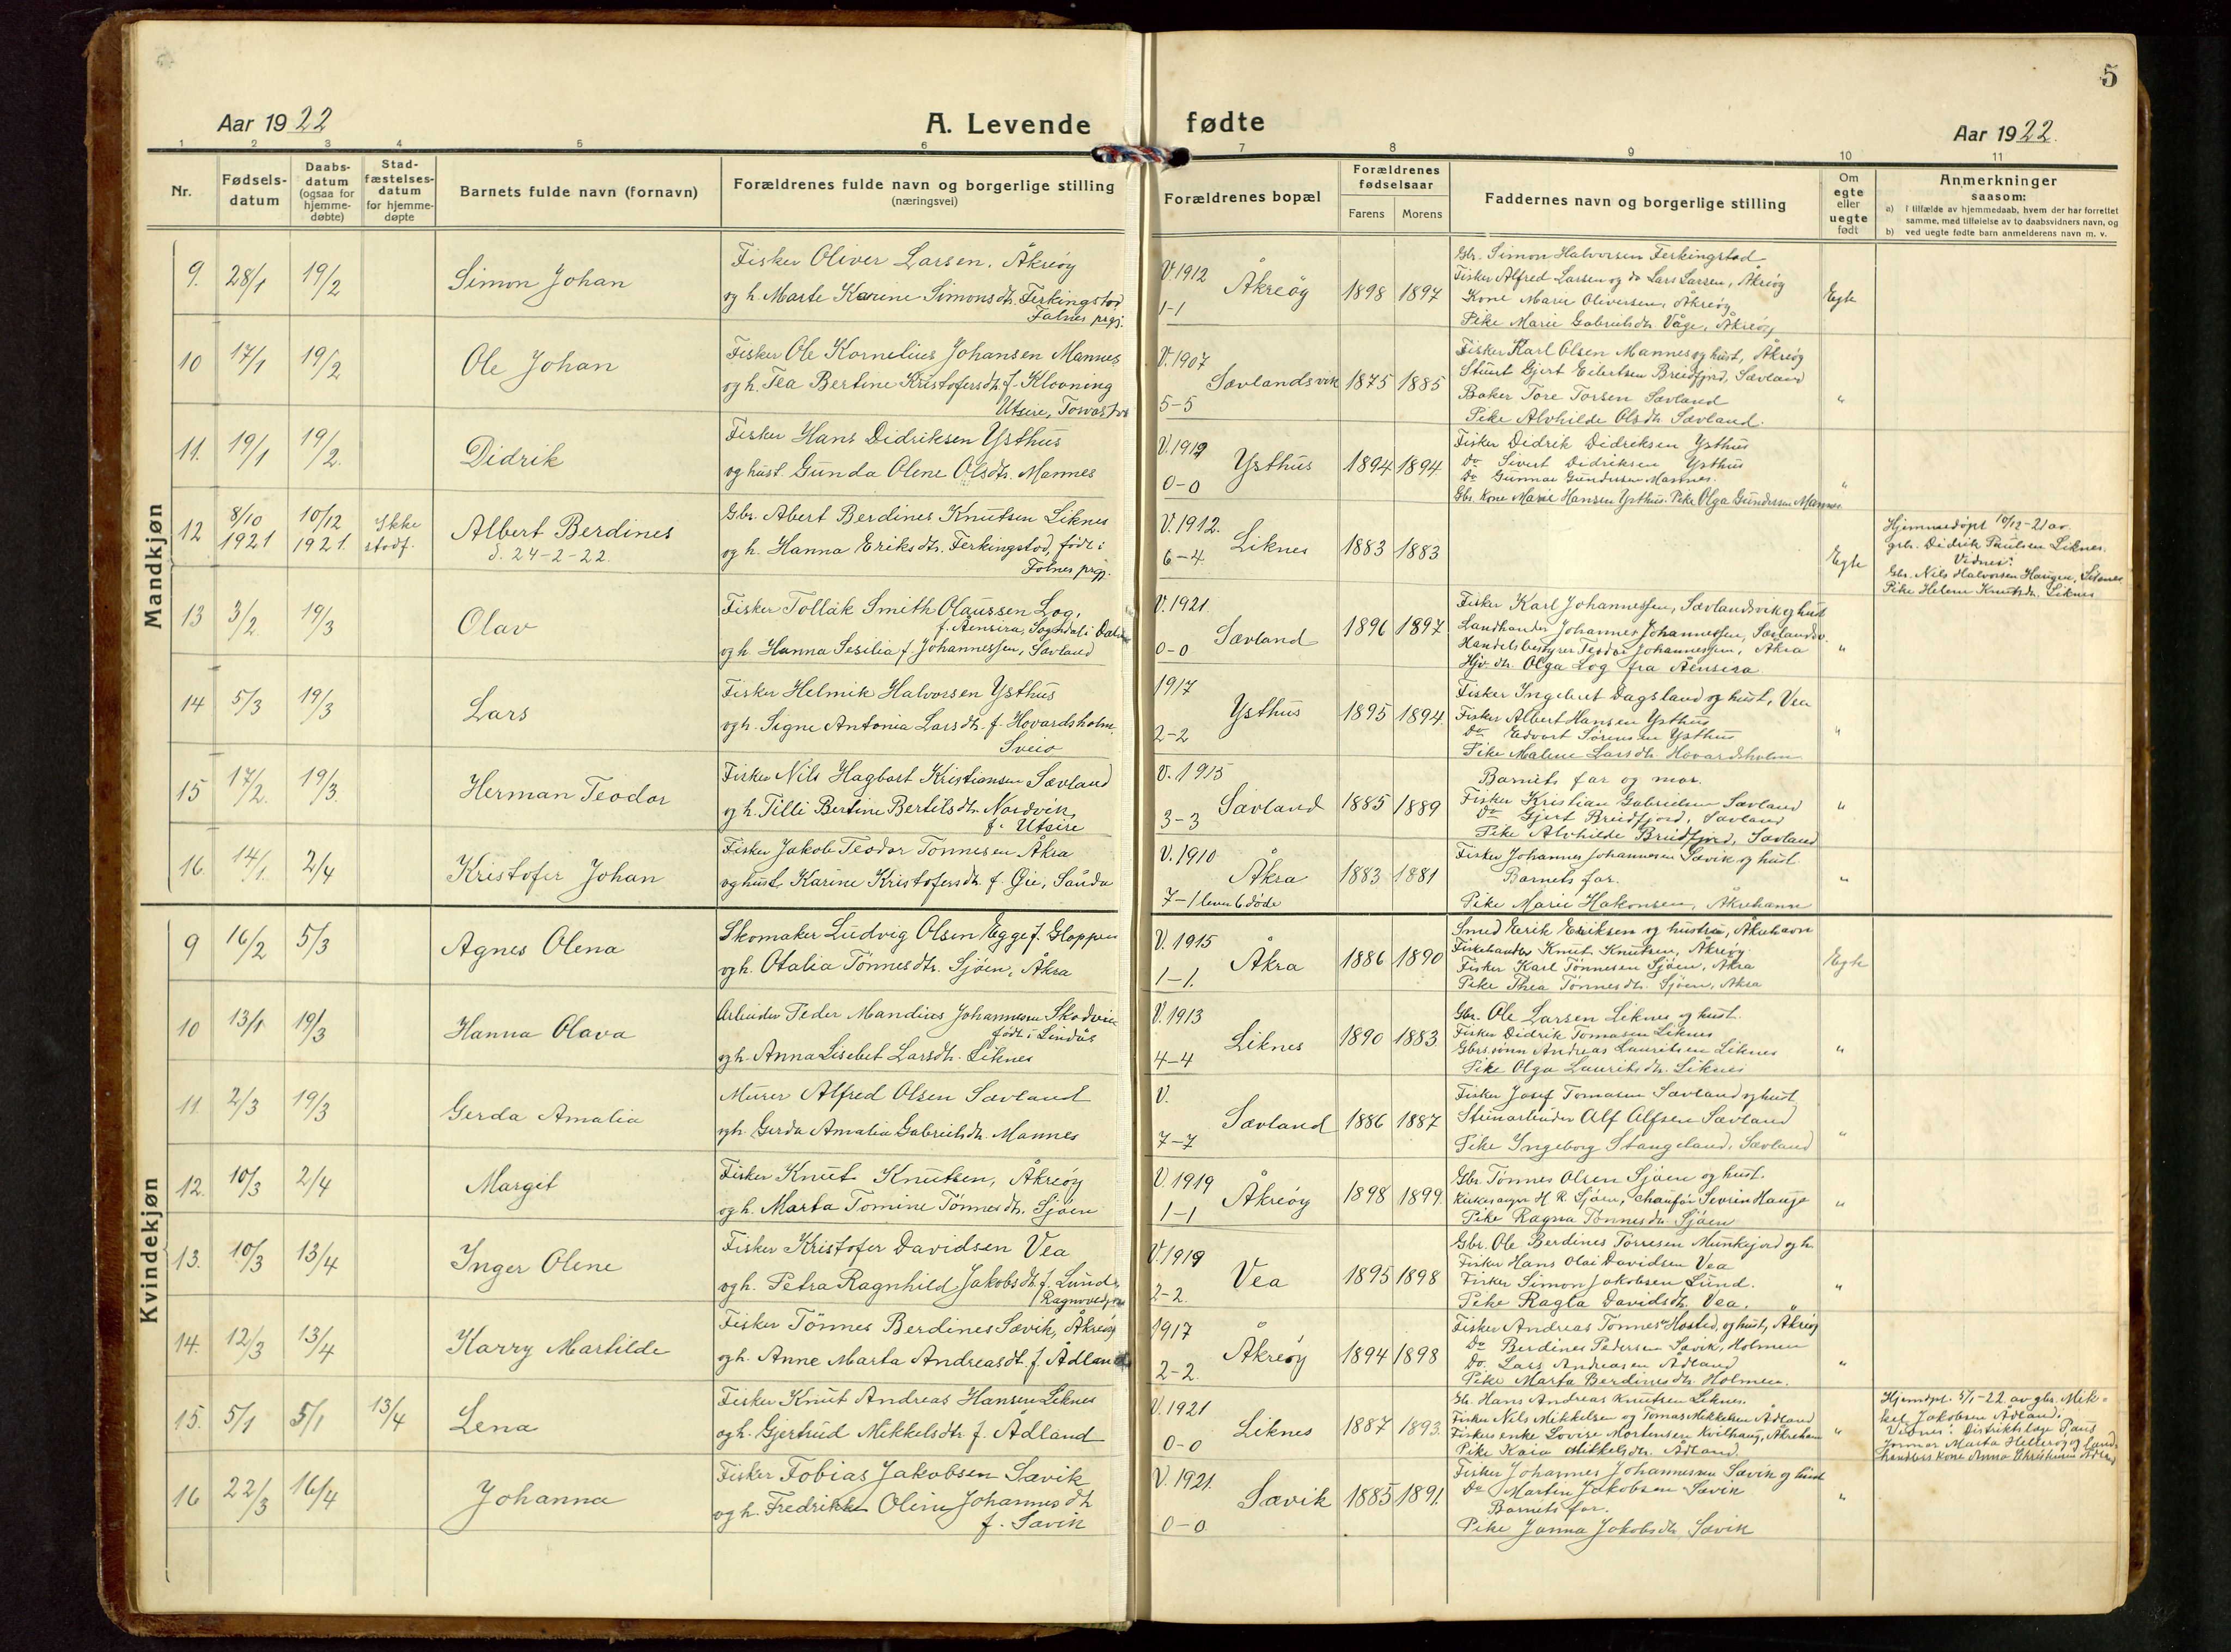 5
Aar 1922
A. Levende fødte
Aar 1922.
1 2 3 4 5 6 7 8 9 10 11
Nr.
Fødsels-
datum
Daabs-
datum
(ogsaa for
hjemme-
døbte)
Stad-
fæstelses-
datum
for hjemme-
døpte
Barnets fulde navn (fornavn)
Forældrenes fulde navn og borgerlige stilling
(næringsvei)
Forældrenes bopæl
Forældrenes
fødselsaar
Farens Morens
Faddernes navn og borgerlige stilling
Om
egte
eller
uegte
født
Anmerkninger
saasom:
a) I tilfælde av hjemmedaab, hvem der har forrettet
samme, med tilføielse av to daabsvidners navn, og
b) ved uegte fødte barn anmelderens navn m. v.
Mandkjøn
9. 28/1 19/2 Simon Johan
Fisker Oliver Larsen, Åkreøy
og h. Marte Karine Simonsdtr. Ferkingstad
Falnes prgj.
V. 1912
1-1
Åkreøy 1898 1897
Gbr. Simon Halvorsen Ferkingstad
Fisker Alfred Larsen og do Lars Larsen, Åkreøy
Kone Marie Oliversen, Åkreøy
Pike Marie Gabrielsdtr. Våge, Åkreøy
Egte
10 17/1 19/2 Ole Johan
Fisker Ole Kornelius Johansen Mannes
og h. Tea Bertine Kristofersdtr. f. Klovning
Utsire, Torvastad
V. 1907
5-5
Sævlandsvik 1875 1885
Fisker Karl Olsen Mannes og hust, Åkreøy
Gjert Eilertsen Breidfjord, Sævland
Baker Tore Torsen Sævland
Pike Alvhilde Olsdtr. Sævland.
"
11. 19/1 19/2. Didrik
Fisker Hans Didriksen Ysthus
og hust. Gunda Olene Olsdtr. Mannes
V. 1919
0-0
Ysthus 1894 1894
Fisker Didrik Didriksen Ysthus
do Sivert Didriksen Ysthus
Do Gunnar Gundersen Mannes.
Gbr. Kone Marie Hansen Ysthus. Pike Olga Gundersen Mannes
"
12 8/10 1921 10/12 1921. Ikke stadf. Albert Berdines
d. 24-2-22.
Gbr. Abert Berdines Knutsen Liknes
og h. Hanna Eriksdtr. Ferkingstad, født i
Falnes prgj.
V. 1912.
6-4
Liknes 1883 1883
Egte
Hjemmedøpt 10/12-21 av
gbr. Didrik Paulsen Liknes.
Vidner:
Gbr. Nils Halvorsen Haugen, Liknes
Pike Helene Knutsdtr. Liknes
13 3/2 19/3 Olav
Fisker Tollak Smith Olaussen Log,
f. Åensira, Sogndal i Dalane
og h. Hanna Sesilia f. Johannessen, Sævland
V. 1921.
0-0
Sævland 1896 1897
Fisker Karl Johannessen, Sævlandsvik og hust
Landhandler Johannes Johannessen, Sævlandsv.
Handelsbestyrer Teodor Johannessen, Åkra
Hjv. dtr. Olga Log fra Åensira
"
14 5/3 19/3 Lars
Fisker Helmik Halvorsen Ysthus
og h. Signe Antonia Larsdtr. f. Hovardsholm.
Sveio
1917
2-2
Ysthus 1895 1894
Fisker Ingebret Dagsland og hust, Vea
Fisker Albert Hansen Ysthus
Do Edvart Sørensen Ysthus
Pike Malene Larsdtr. Hovardsholm
"
15 17/2. 19/3. Herman Teodor
Fisker Nils Hagbart Kristiansen Sævland
og h. Tilli Bertine Bertelsdtr. Nordvik,
f. Utsire
V. 1915
3-3
Sævland 1885 1889
Barnets far og mor.
Fisker Kristian Gabrielsen Sævland
Do Gjert Breidfjord, Sævland
Pike Alvhilde Breidfjord, Sævland
"
16. 14/1. 2/4 Kristofer Johan
Fisker Jakob Teodor Tønnesen Åkra
og hust. Karine Kristofersdtr. f. Øie, Sauda
V. 1910
7-1 lever 6 døde
Åkra 1883 1881
Fisker Johannes Johannesen Sævik og hust.
Barnets far.
Pike Marie Hakonsen, Åkrehamn
"
Kvindekjøn
9 16/2 5/3 Agnes Olena
Skomaker Ludvig Olsen Egge f. Gloppen
og h. Otalia Tønnesdtr. Sjøen, Åkra
V. 1915
1-1.
Åkra 1886 1890
Smed Eerik Eeriksen og hustru, Åkrehavn
Fiskehandler Knut Knutsen, Åkreøy
Fisker Karl Tønnesen Sjøen, Åkra
Pike Thea Tønnesdtr. Sjøen, Åkra
Egte
10 13/1 19/3 Hanna Olava
Arbeider Peder Mandius Johannesen Skodvin
født i Lindås
og h. Anna Lisebet Larsdtr. Liknes
V. 1913
4-4
Liknes 1890 1883
Gbr. Ole Larsen Liknes og hust.
Fisker Didrik Tomasen Liknes
Gbrs. sønn Andreas Lauritsen Liknes
Pike Olga Lauritsdtr. Liknes
"
11. 2/3 19/3 Gerda Amalia
Murer Alfred Olsen Sævland
og h. Gerda Amalia Gabrielsdtr. Mannes
V.
7-7
Sævland 1886 1887
Fisker Josef Tomasen Sævland og hust
Steinarbeider Alf Alfsen Sævland
Pike Ingeborg Stangeland, Sævland
"
12. 10/3 2/4 Margit
Fisker Knut Knutsen, Åkreøy
og h. Marta Tomine Tønnesdtr. Sjøen
V. 1919
1-1
Åkreøy 1898 1899
Gbr. Tønnes Olsen Sjøen og hust.
Kirkesanger H R Sjøen, Chaufør Sevrin Hauge
Pike Ragna Tønnesdtr. Sjøen
"
13. 10/3 13/4 Inger Olene
Fisker Kristofer Davidsen Vea
og h. Petra Ragnhild Jakobsdtr. f. Lund,
V. 1919
2-2.
Vea 1895 1898
Gbr. Ole Berdines Torresen Munkejord og h.
Fisker Hans Olai Davidsen Vea
Fisker Simon Jakobsen Lund.
Pike Ragla Davidsdtr. Vea.
"
14. 12/3 13/4 Karry Martilde
Fisker Tönnes Berdines Sævik, Åkreøy
og h. Anne Marta Andreasdt. f. Ådland
1917
2-2.
Åkreøy 1894 1898
Fisker Andreas Tønnes Hasted, og hust, Åkreøy
Do Berdines Pedersen Sævik, Holmen
Do. Lars Andreasen Ådland
Pike Marta Berdinesdtr. Holmen.
"
15. 5/1 5/1 13/4 Lena
Fisker Knut Andreas Hansen Liknes
og h. Gjertrud Mikkelsdtr f. Ådland
V. 1921
0-0
Liknes 1887 1893.
Gb. Hans Andreas Knutsen Liknes.
Fisker Nils Mikkelsen og Tomas Mikkelsen Ådland
Fiskers enke Lovise Mortensen Kvilhaug, Åkrehamn
Pike Kaia Mikkelsdtr. Ådland
"
Hjemdpt. 5/1-22 av gbr. Mik-
kel Jakobsen Ådland.
Vidner: Distriktslæge Paus
Jormor Marta Hellesøy og land-
handlers kone Anna Christensen Ådland
16 22/3 16/4 Johanna
Fisker Tobias Jakobsen Sævik
og h. Fredrikke Oline Johannesdtr
f. Sævik
V. 1921.
0-0
Sævik 1885 1891.
Fisker Johannes Johannessen Sævik og hust
Do Martin Jakobsen Sævik
Barnets far.
Pike Janna Jakobsdtr. Sævik
"